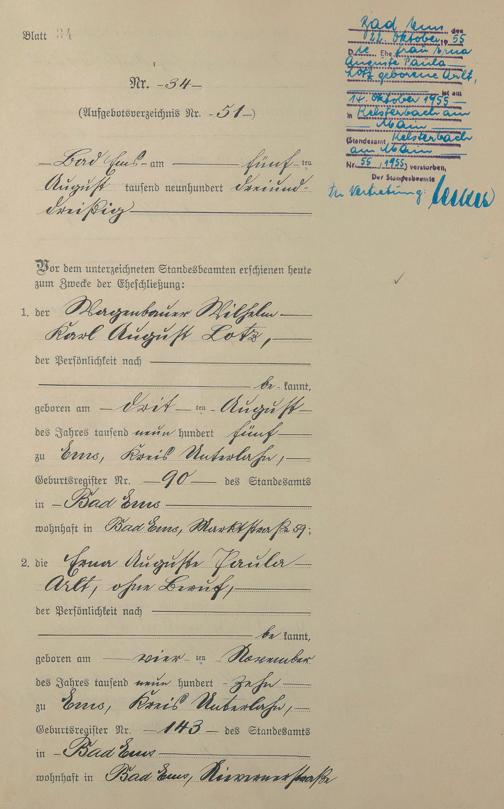 Blatt 34
Nr. 34
(Aufgebotsverzeichnis Nr. 51)
Bad Ems am fünf ten
August tausend neunhundert dreiund-
dreißig
Vor dem unterzeichneten Standesbeamten erschienen heute
zum Zwecke der Eheschließung:
1. der Wagenbauer Wilhelm
Karl August Lotz,
der Persönlichkeit nach
be kannt,
geboren am drit ten August
des Jahres tausend neun hundert fünf
zu Ems, Kreis Unterlahn,
Geburtsregister Nr. 90 des Standesamts
in Bad Ems
wohnhaft in Bad Ems, Marktstraße 59;
2. die Erna Auguste Paula
Arlt, ohne Beruf,
der Persönlichkeit nach
be kannt,
geboren am vier ten November
des Jahres tausend neun hundert zehn
zu Ems, Kreis Unterlahn,
Geburtsregister Nr. 143 des Standesamts
in Bad Ems
wohnhaft in Bad Ems, Nievernerstraße
Bad Ems den
21. Oktober 1955
Die Ehefrau Erna
Auguste Paula
Lotz geborene Arlt,
ist am
14. Oktober 1955
in Kelsterbach am
Main
(Standesamt Kelsterbach
am Main
Nr. 55/1955) verstorben.
Der Standesbeamte
In Vertretung: